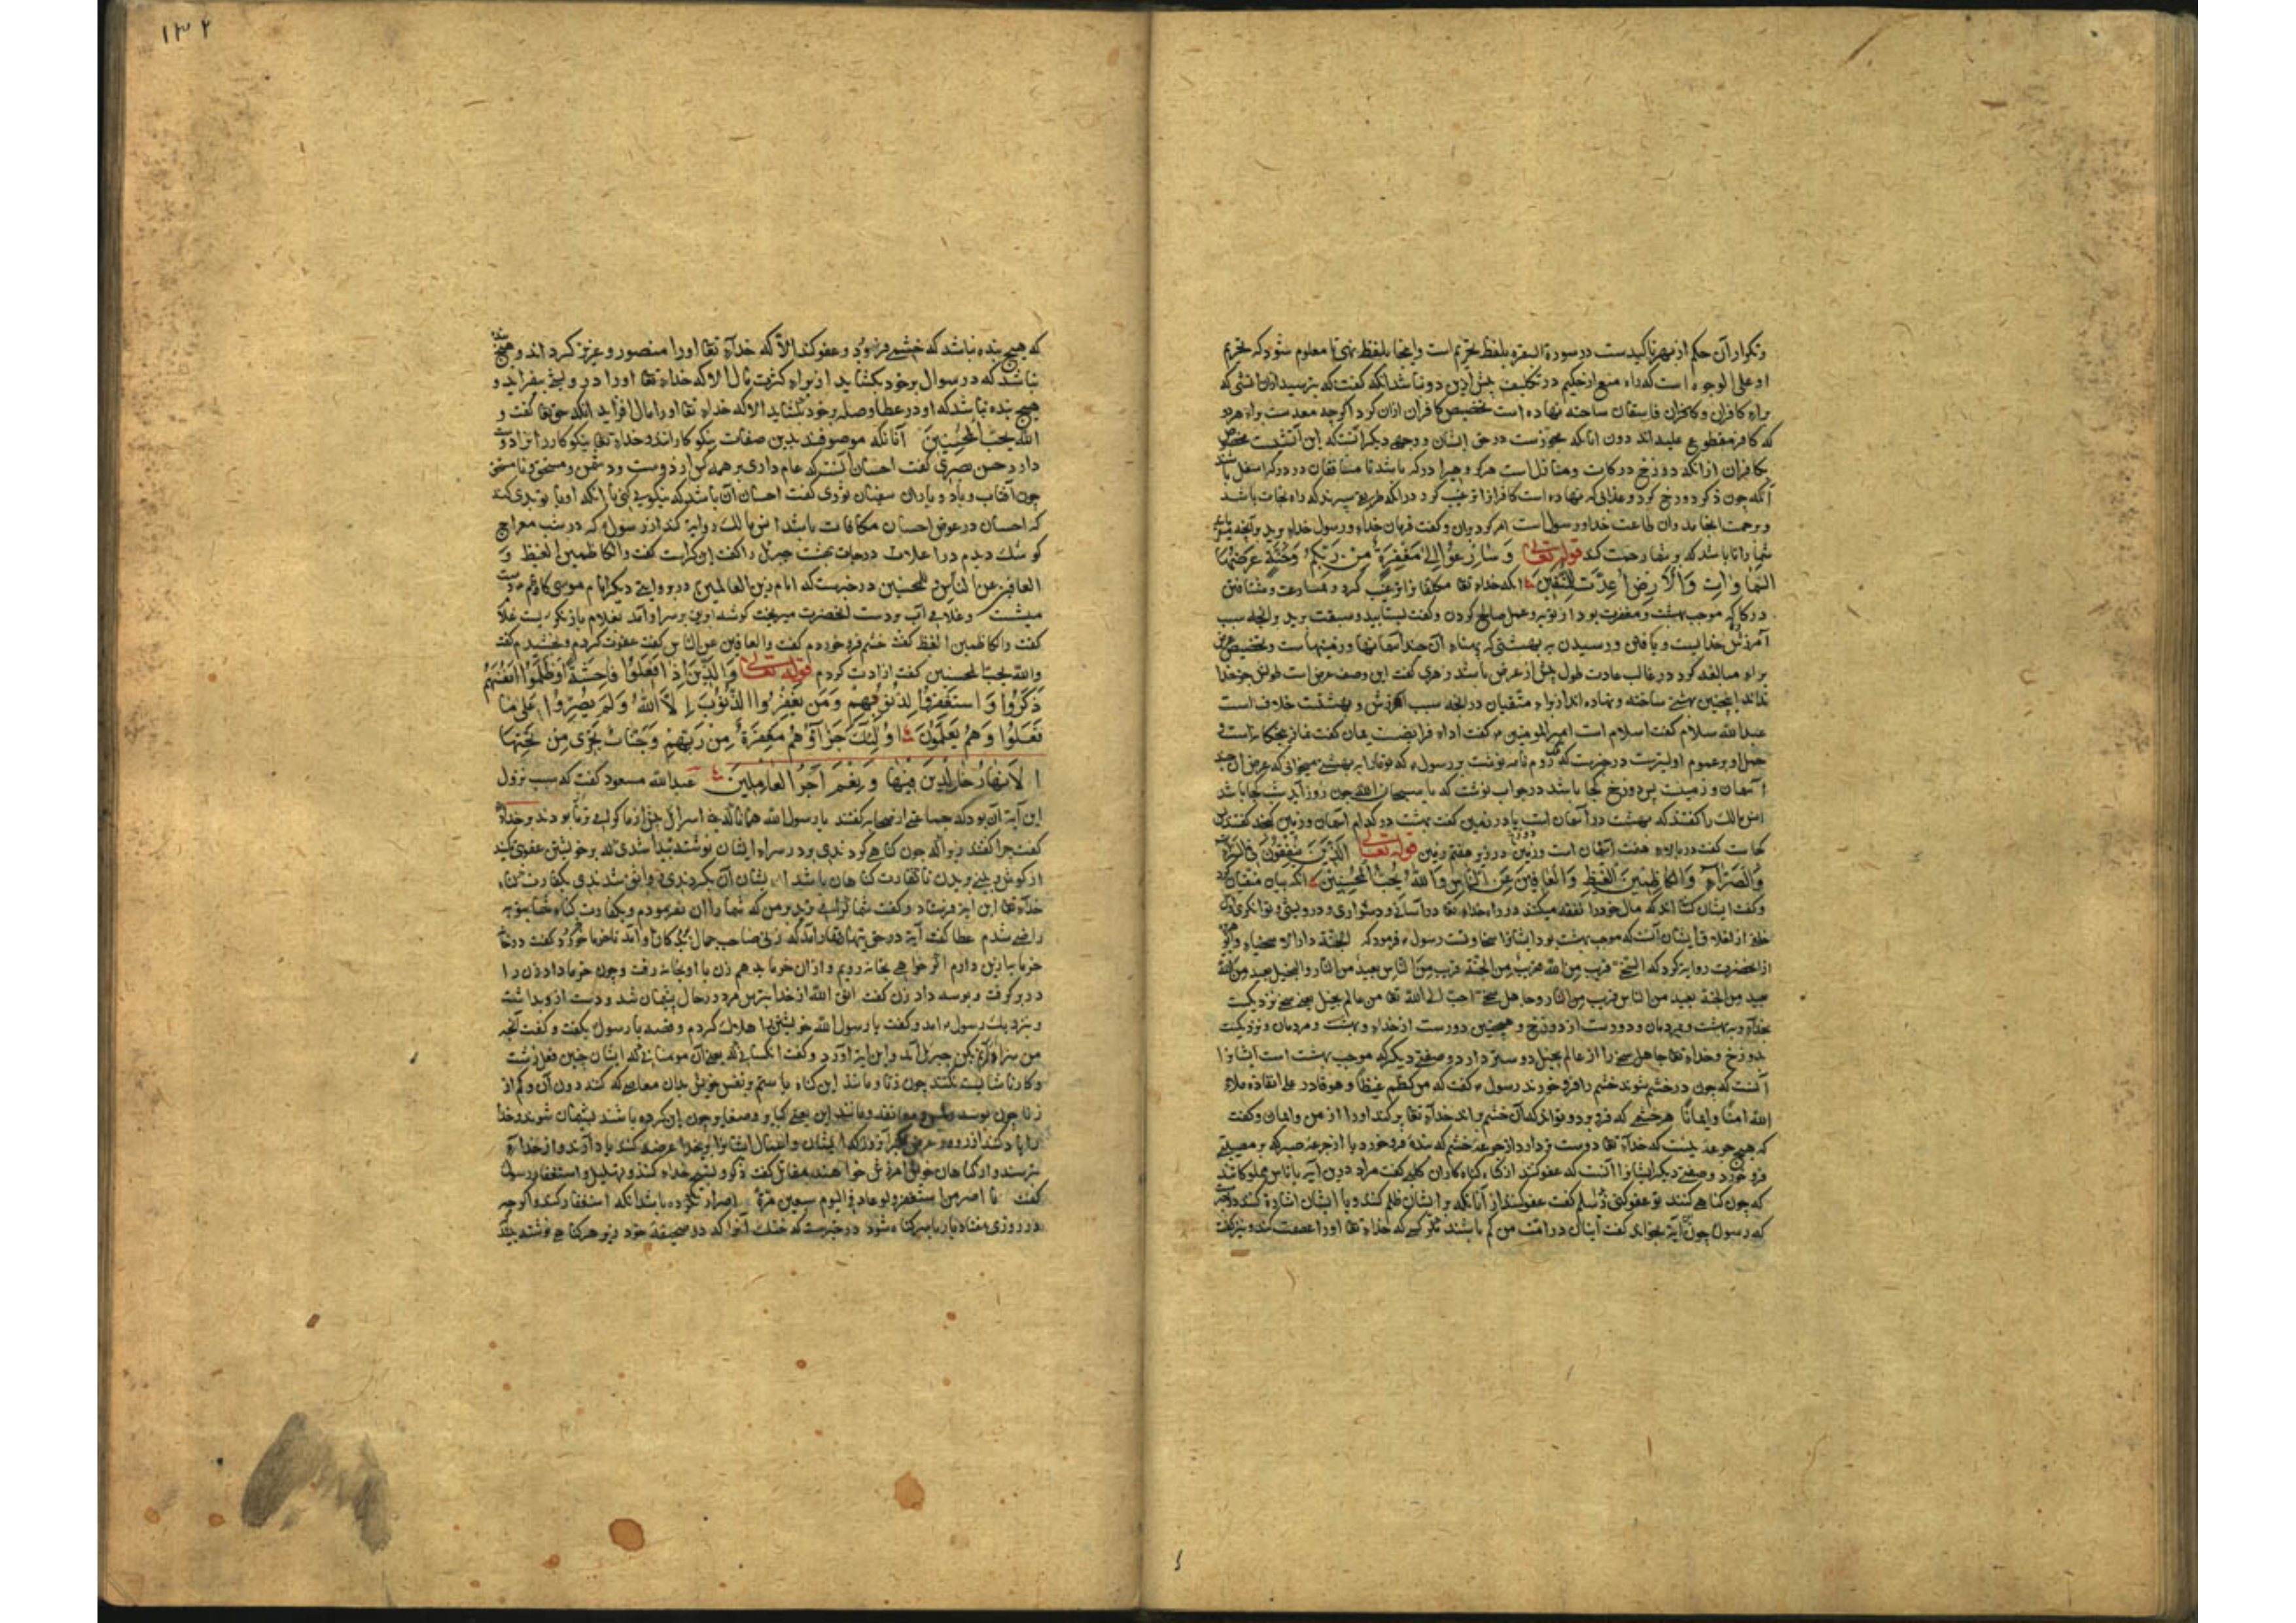 وتکرار آن حکم از بهر تاکیدست در سورة البقره بلفظ تحریم است واینجا بلفظ نهی تا معلوم شود که تحریم
او علی الوجوه است که راه منع از حکیم در تکلیف بیش ازین دو نباشد آنکه گفت که بترسید ازان اتشی که
برای کافران وکافران فاسقان ساخته نهاده است تخصیص کافران ازان کرد اگرچه معدست برای هردو
که کافر مقطوع علیه اند دون انانکه مجوزست در حق ایشان ووجهی دیگر انست که این آتشیست مخصوص
بکافران از انکه دوزخ درکات ومنازل است هر گروهی را درکه باشد تا منافقان در درک اسفل باشند
آنگه چون ذکر دوزخ کرد وعذابی که نهاده است کافران را ترغیب کرد در انکه طریقی سپرند که راه نجات باشد
وبرحمت انجامد وان طاعت خدا ورسول است امر کرد بدان وگفت فرمان خدای ورسول خدای برید
شما را تا باشد که بر شما رحمت کند قوله تعالی وَسَارِعُوا إِلَى مَغْفِرَةٍ مِنْ رَبِّكُمْ وَجَنَّةٍ عَرْضُهَا
السَّمَاوَاتِ وَالْأَرْضُ أُعِدَّتْ لِلْمُتَّقِينَ انکه خدای تعا مکلفانرا ترغیب کرد و مسارعت ومشتافتن
در کاری که موجب بهشت ومغفرت بود از توبه وعمل صالح کردن وگفت بشتابید وسبقت برید بر انچه سبب
آمرزش خدایست ویافتن ورسیدن به بهشتی که پهنای ان چند آسمانها وزمینهاست وتخصیص عرض
برای مبالغه کرد در غالب عادت طول بیش از عرض باشد زهری گفت این وصف عرض است طولش جز خدا
نداند اینچنین بهشتی ساخته ونهاده اند از برای متقیان در انچه سبب امرزش وبهشتست خلافست
عبدالله سلام گفت اسلام است امیرالمومنین گفت اداء فرایضست یمان گفت نماز پنجگانه است
حمل او بر عموم اولیترست در خبرست که روم نامه نوشت بر رسول که تو ما را به بهشتی میخوانی که عرض ان چند
آسمان وزمینست پس دوزخ کجا باشد در جواب نوشت که یا سبحان الله چون روز آید شب کجا باشد
انس مالک را گفتند که بهشت در آسمان است یا در زمین گفت بهشت در کدام آسمان وزمین گنجد گفتند پس
کجاست گفت در بالای هفت آسمان است ودوزخ در زیر هفتم زمین قوله تعالی الَّذِينَ يُنْفِقُونَ فِي السَّرَّاءِ
وَالضَّرَّاءِ وَالْكَاظِمِينَ الْغَيْظَ وَالْعَافِينَ عَنِ النَّاسِ وَاللَّهُ يُحِبُّ الْمُحْسِنِينَ انکه بیان متقیان کرد
وگفت ایشان کسانی اند که مال خودرا نفقه میکنند در راه خدای تعا در آسانی ودشواری ودرویشی وتوانگری
خلق از اخلاق ایشان آنست که موجب بهشت بود ایشانرا سخاوتست رسول فرمود که الجنة دار الاسخیاء
ازان حضرت روایة کرد که السخی قریب من الله قریب من الجنة قریب من الناس بعید من النار والبخیل بعید من الله
بعید من الجنة بعید من الناس قریب من النار وجاهل سخی احب الی الله تعا من عالم بخیل یعنی سخی نزدیکست
بخدای وبه بهشت وبمردمان ودورست از دوزخ وهمچنین دورست از خدای وبهشت ومردمان ونزدیکست
بدوزخ وخدای تعا جاهل سخی را از عالم بخیل دوستر دارد وصفتی دیگر که موجب بهشت است ایشانرا
آنست که چون در خشم شوند خشم را فرو خورند رسول گفت که من کظم غیظا وهو قادر علی انفاذه ملأه
الله امنا وایمانا هر خشمی که فرو برد وتواند که آن خشم واند خدای تعا پر کند اورا از امن وایمان وگفت
که هیچ جرعه نیست که خدای تعا دوستر دارد از جرعه خشم که بنده فرو خورد یا از جرعه صبر که بر مصیبتی
فرو خورد وصفتی دیگر ایشانرا آنست که عفو کنند از گناه گناه کاران کلبی گفت مراد دون آیه بالناس مملوکانند
که چون گناهی کنند تو عفو کنی زید اسلم گفت عفو کنند از آنانکه بر ایشان ظلم کنند وبا ایشان اشارة کنند
که رسول چون این آیة بخواند گفت اینان در امت من کم باشند مگر کسی که خدای تعا اورا عصمت کند ونیز گفت
۱۳۲
که هیچ بنده نباشد که خشمی فرو برد وعفو کند الا که خدای تعا اورا منصور وعزیز گرداند وهیچ بنده
نباشد که در سوال بر خود بگشاید از برای کثرت مال الا که خدای تعا اورا درویشی بیفزاید و
هیچ بنده نباشد که او در عطا وصله بر خود بگشاید الا که خدای تعا اورا مال افزاید انکه حق تعا گفت و
الله یحب المحسنین آنانکه موصوفند بدین صفات نیکوکارانند وخدای تعا نیکوکاردانرا دوست
دارد حسن بصری گفت احسان آنست که عام داری بر همه کس از دوست ودشمن ومستحق ونامستحق
چون آفتاب وباد وباران سفیان ثوری گفت احسان آن باشد که نیکویی کنی با انکه او با تو بدی کند
که احسان در عوض احسان مکافات باشد انس مالک روایة کند از رسول که در شب معراج
کوشک دیدم در اعلای درجات بهشت جبرئیل را گفتم این کراست گفت والکاظمین الغیظ و
العافین عن الناس والله یحب المحسنین در خبرست که امام زین العالمین ودر روایتی دیگر امام موسی کاظم دست
میشست وغلامی آب بر دست انحضرت میریخت گوشه ابریق بر سر او آمد بغلام باز نگریست غلام
گفت والکاظمین الغیظ گفت خشم فرو خوردم گفت والعافین عن الناس گفت عفوت کردم وبخشیدم گفت
والله یحب المحسنین گفت ازادت کردم قوله تعالی وَالَّذِينَ إِذَا فَعَلُوا فَاحِشَةً أَوْ ظَلَمُوا أَنْفُسَهُمْ
ذَكَرُوا وَاسْتَغْفَرُوا لِذُنُوبِهِمْ وَمَنْ يَغْفِرُ الذُّنُوبَ إِلَّا اللَّهُ وَلَمْ يُصِرُّوا عَلَى مَا
فَعَلُوا وَهُمْ يَعْلَمُونَ أُولَئِكَ جَزَاؤُهُمْ مَغْفِرَةٌ مِنْ رَبِّهِمْ وَجَنَّاتٌ تَجْرِي مِنْ تَحْتِهَا
الْأَنْهَارُ خَالِدِينَ فِيهَا وَنِعْمَ أَجْرُ الْعَامِلِينَ عبدالله مسعود گفت که سبب نزول
این آیة آن بود که جماعتی از صحابه گفتند یا رسول الله همانا که بنی اسرائیل بیش از ما گرامی تر بودند بر خدای
گفت چرا گفتند زیرا که چون گناهی کردندی بر در سرای ایشان نوشته پیدا شدی که بر خویشتن عقوبتی کنید
از گوش وبینی بریدن تا کفارت گناهان باشد ایشان آن بکردندی وواثق شدندی بکفارت گناه
خدای تعا این ایة فرستاد وگفت شما گرامی ترید بر من که شما را ان نفرمودم وبکفارت گناه شما بتوبه
راضی شدم عطا گفت آیة در حق نبهان تمار آمد که زنی صاحب جمال بدکان او آمد تا خرما خرد وگفت در خانه
خرما به ازین دارم اگر خواهی بخانه رویم وازان خرما بدهم زن با او بخانه رفت وچون خرما داد زن را
در بر گرفت وبوسه داد زن گفت اتق الله از خدا بترس مرد در حال پشیمان شد ودست از وبداشت
وبنزدیک رسول امد وگفت یا رسول الله خویشتن را هلاک کردم وقصه با رسول بگفت وگفت آنچه
من سزاوارم بکن جبرئیل آمد واین ایة اورد وگفت انکسانی که یعنی آن مومنانی که ایشان چنین فعل زشت
وکار ناشایست بکنند چون زنا ومانند این گناه یا ستم بر نفس خویش چنان معاصی که کنند دون آن وکم از
زنا چون بوسه ولمس ومعانقه ومانند این یعنی کبایر وصغایر چون این کرده باشند پشیمان شوند وخدا
را یاد کنند از روه وعرض اکبر آنروز که ایشان واعمال ایشانرا بر خدا عرضه کنند یاد آرند واز خدای
بترسند واز گناهان خویش امرزش خواهند مقاتل گفت ذکر وتسبیح خدای کنند وتهلیل واستغفار رسول
گفت ما اصر من استغفر ولو عاد فی الیوم سبعین مرة اصرار نکرده باشد انکه استغفار کند واگرچه
در روزی هفتاد بار با سر گناه شود در خبرست که خنک آنرا که در صحیفه خود زیر هر گناهی نوشته بیند